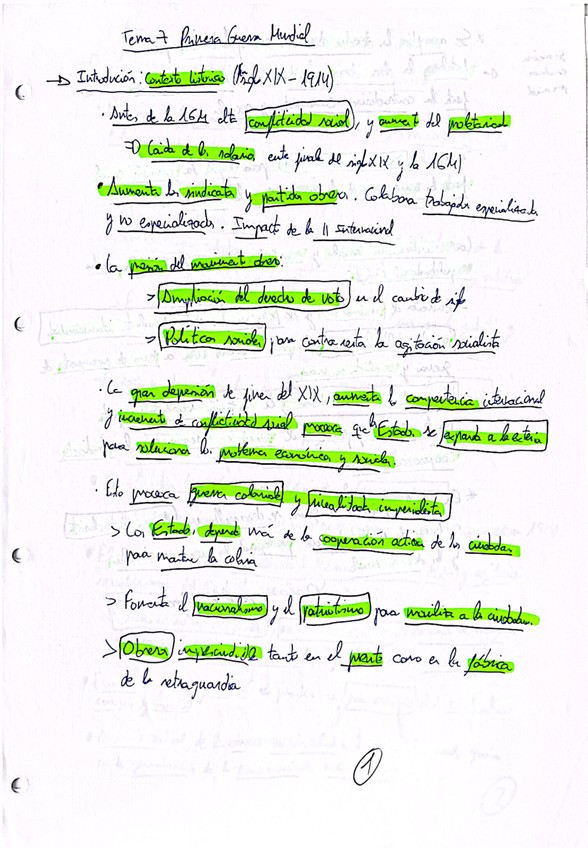 Tema 7 Primera Guerra Mundial
→ Introdución: Contexto histórico (siglo XIX - 1914)
· Antes de la 1GM alta conflictividad social, y aumento del proletariado
⇒ Caída de los salarios entre finales del siglo XIX y la 1GM)
· Aumenta los sindicatos y partidos obreros. Colabora trabajadores especializados
y no especializados. Impacto de la II Internacional
· La presión del movimiento obrero:
> Ampliación del derecho de voto en el cambio de siglo
> Políticas sociales para contrarrestar la agitación socialista
· La gran depresión de fines del XIX, aumenta la competencia internacional
y incremento de conflictividad social provoca que los Estados se expanda a la exterior
para solucionar los problemas económicos y sociales.
· Esto provoca guerras coloniales y rivalidades imperialistas
> Los Estados dependen más de la cooperación activa de los ciudadanos
para mantener la
> Fomenta el nacionalismo y el patriotismo para movilizar a los ciudadanos.
> Obreros imprescindibles tanto en el frente como en las fábricas
de la retraguardia
1